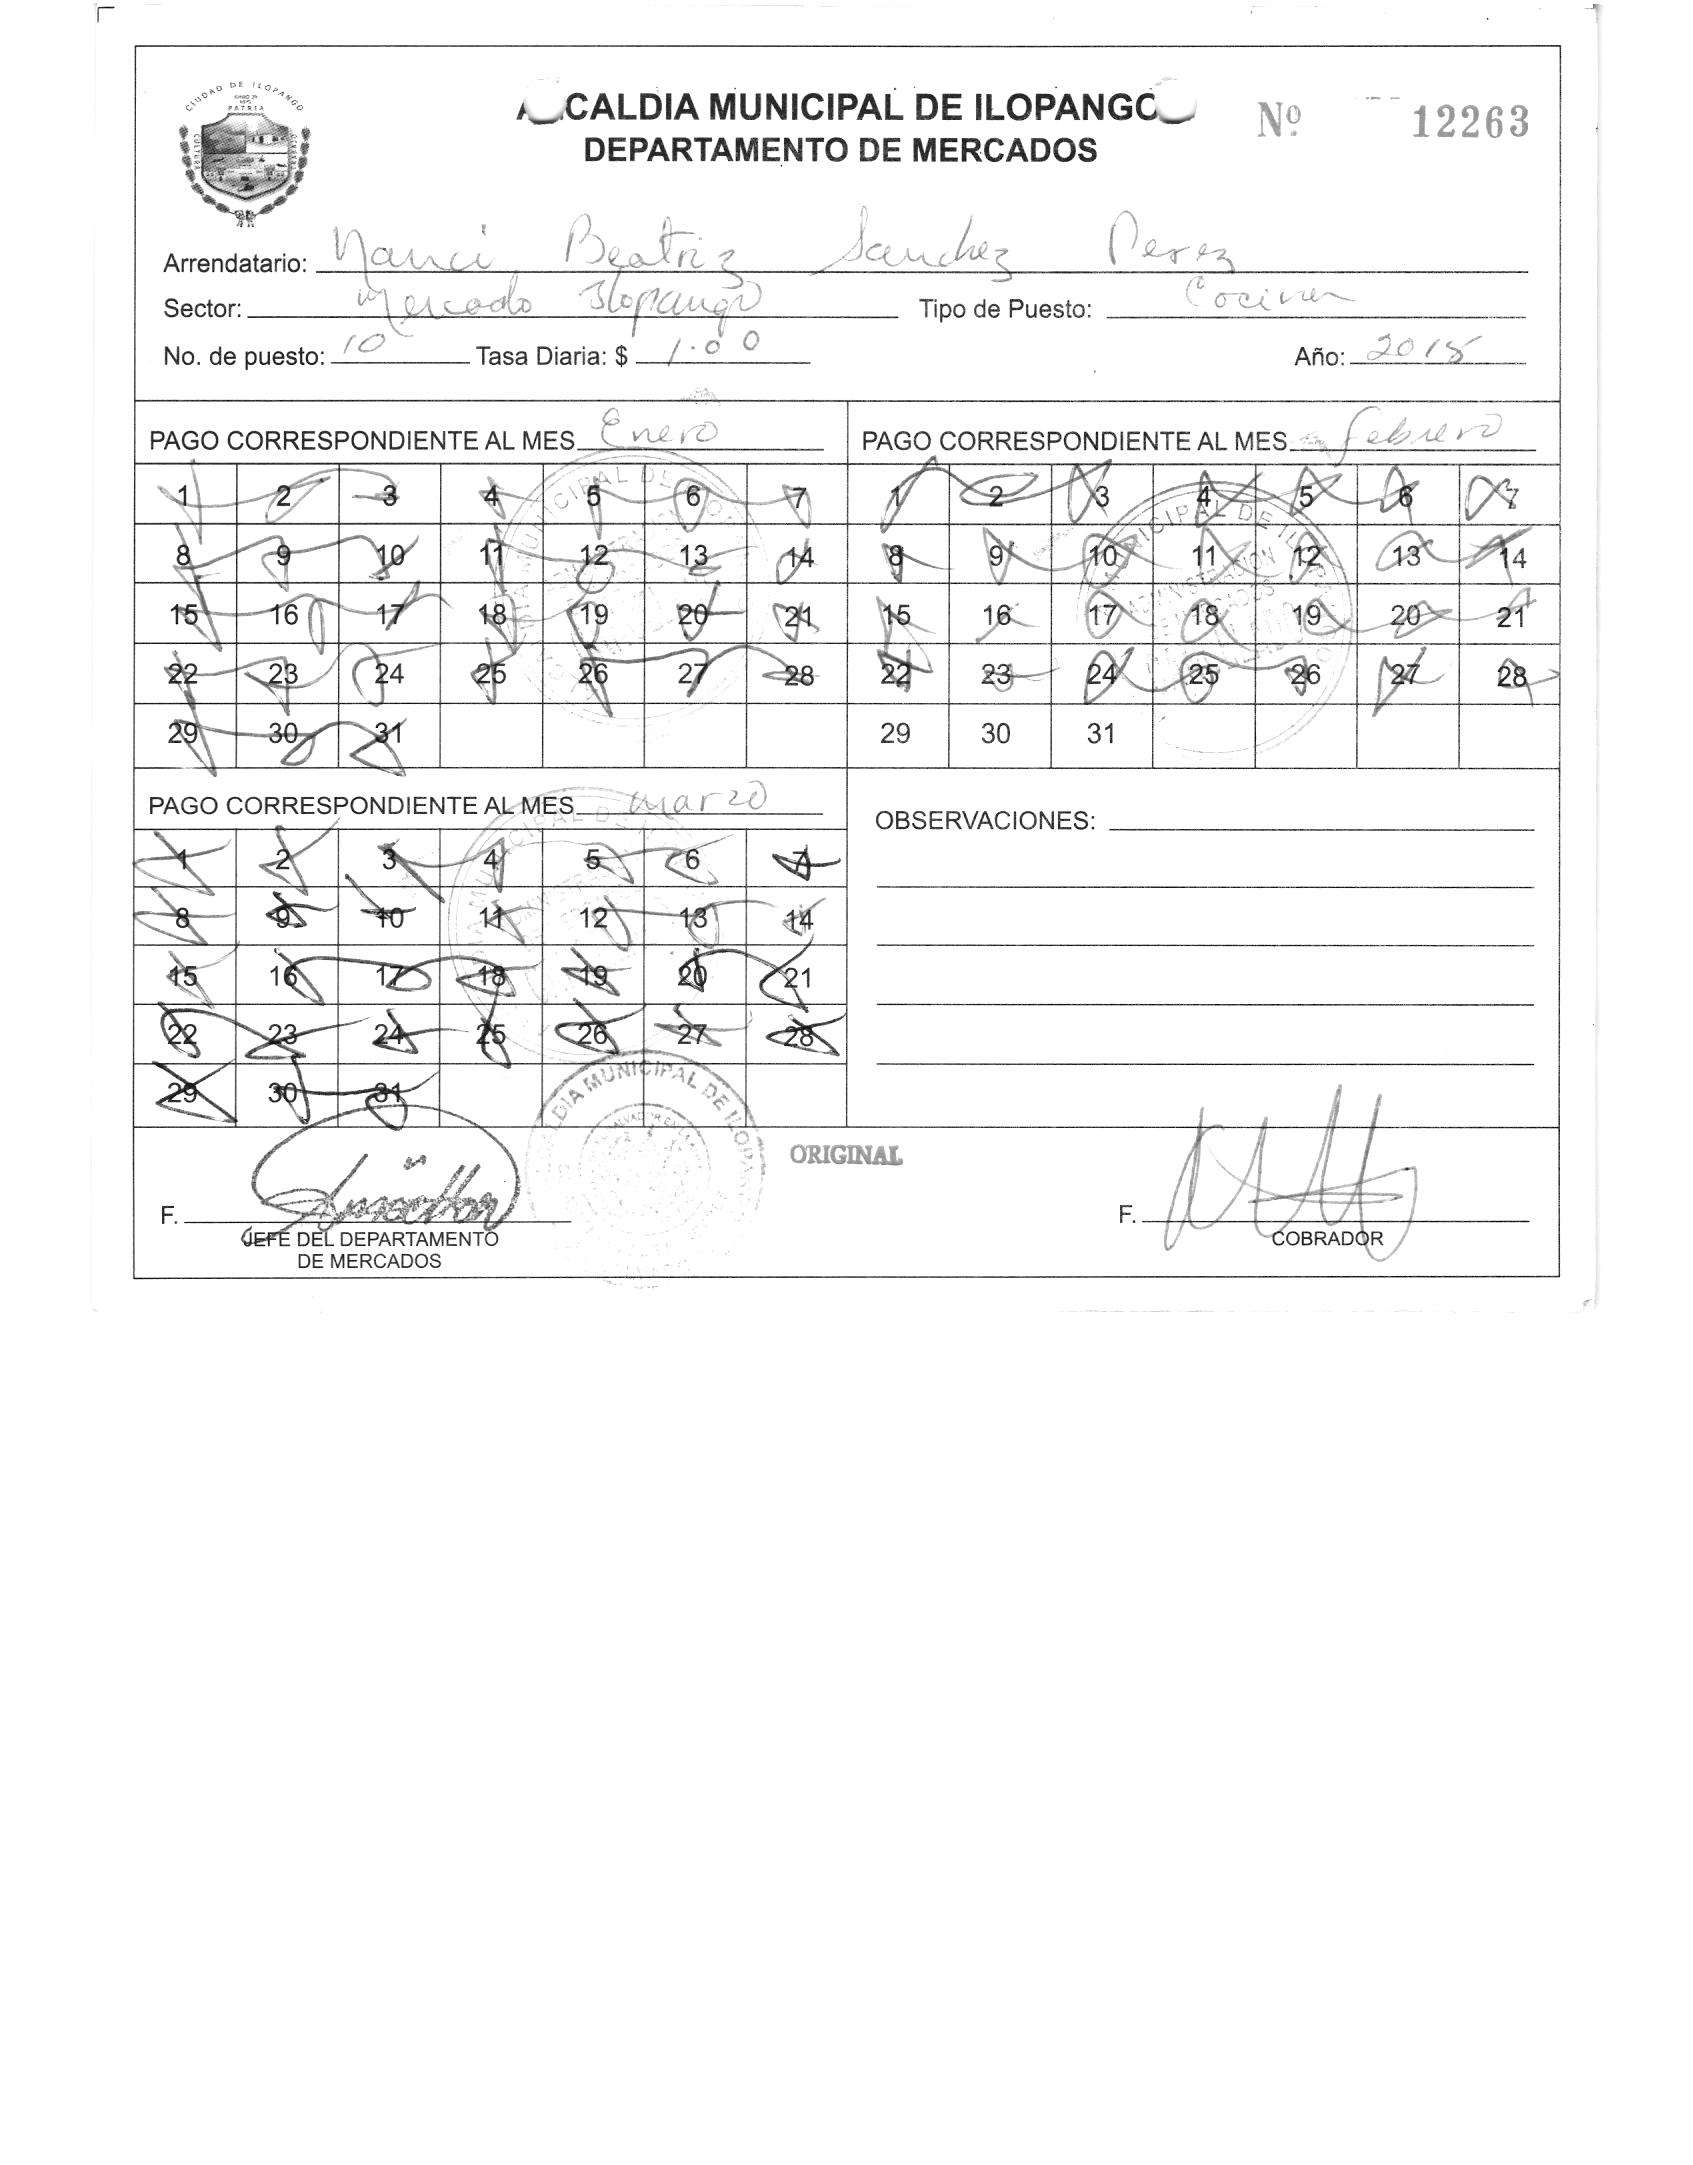 CIUDAD DE ILOPANGO
PATRIA
CULTURA
ALCALDIA MUNICIPAL DE ILOPANGO
DEPARTAMENTO DE MERCADOS
Nº 12263
Arrendatario: Nanci Beatriz Sanchez Perez
Sector: Mercado Ilopango Tipo de Puesto: Cocina
No. de puesto: 10 Tasa Diaria: $ 1.00 Año: 2015
PAGO CORRESPONDIENTE AL MES Enero
1 2 3 4 5 6 7
8 9 10 11 12 13 14
15 16 17 18 19 20 21
22 23 24 25 26 27 28
29 30 31
PAGO CORRESPONDIENTE AL MES febrero
1 2 3 4 5 6 7
8 9 10 11 12 13 14
15 16 17 18 19 20 21
22 23 24 25 26 27 28
29 30 31
PAGO CORRESPONDIENTE AL MES marzo
1 2 3 4 5 6 7
8 9 10 11 12 13 14
15 16 17 18 19 20 21
22 23 24 25 26 27 28
29 30 31
OBSERVACIONES:
ALCALDIA MUNICIPAL DE ILOPANGO
ORIGINAL
F.
JEFE DEL DEPARTAMENTO
DE MERCADOS
F.
COBRADOR